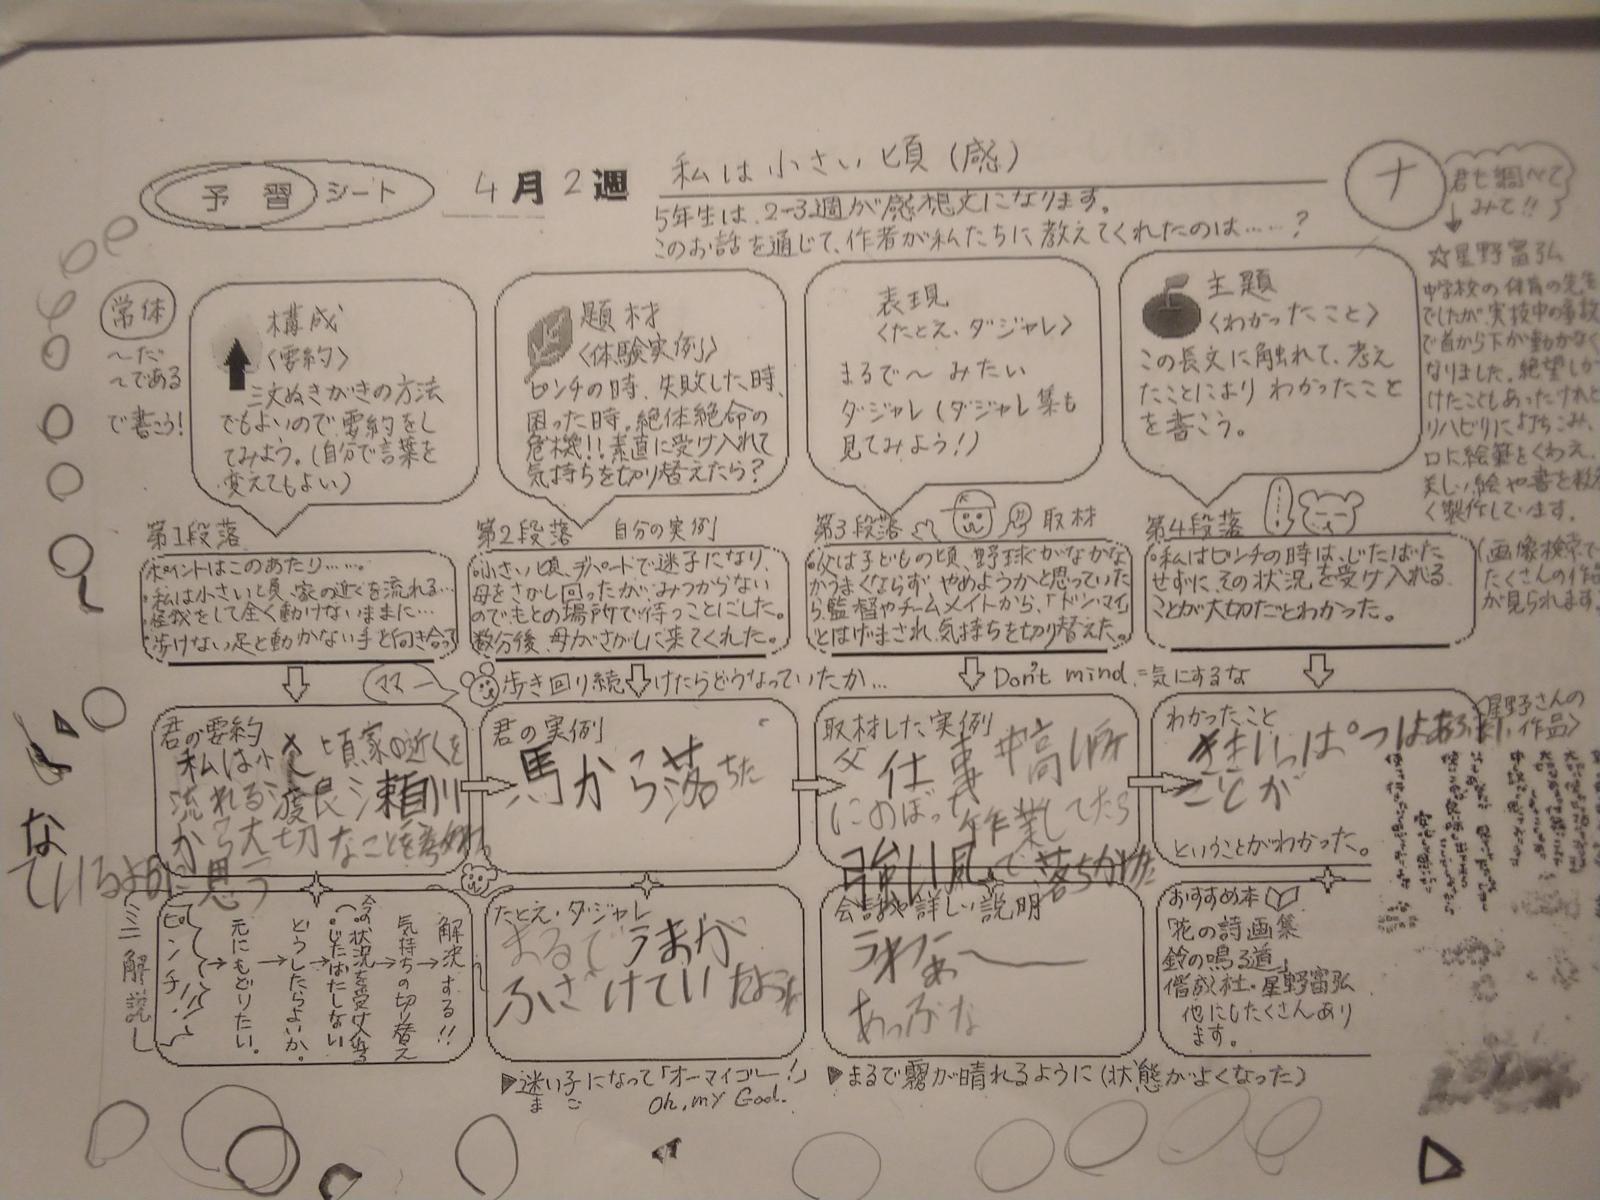 予習シート
4月2週
私は小さい頃(感)
5年生は、2-3週が感想文になります。
このお話を通じて、作者が私たちに教えてくれたのは……?
ナ
君も調べて
みて!!
常体
〜だ
〜である
で書こう!
構成
〈要約〉
三文ぬきがきの方法
でもよいので要約をし
てみよう。(自分で言葉を
変えてもよい)
題材
〈体験実例〉
ピンチの時、失敗した時、
困った時、絶体絶命の
危機!!素直に受け入れて
気持ちを切り替えたら?
表現
〈たとえ・ダジャレ〉
まるで〜みたい
ダジャレ(ダジャレ集も
見てみよう!)
主題
〈わかったこと〉
この長文に触れて、考え
たことによりわかったこと
を書こう。
☆星野富弘
中学校の体育の先生
でしたが、実技中の事故
で首から下が動かなく
なりました。絶望しか
けたこともあったけれど
リハビリに打ちこみ、
口に絵筆をくわえ、
美しい絵や書を数多
く製作しています。
(画像検索で
たくさんの作品
が見られます
第1段落
ポイントはこのあたり……。
・私は小さい頃、家の近くを流れる…
・怪我をして全く動けないままに…
・歩けない足と動かない手と向き合って
第2段落 自分の実例
・小さい頃、デパートで迷子になり、
母をさがし回ったが、みつからない
のでもとの場所で待つことにした。
数分後、母がさがしに来てくれた。
第3段落 取材
・父は子どもの頃、野球がなかな
かうまくならず やめようかと思っていた
ら、監督やチームメイトから、「ドンマイ」
とはげまされ、気持ちを切り替えた。
第4段落
・私はピンチの時は、じたばた
せずに、その状況を受け入れる
ことが大切だとわかった。
ママー
歩き回り続けたらどうなっていたか…
Don't mind.=気にするな
君の要約
私は小さい頃家の近くを
流れる渡良瀬川
から大切なことを教わっ
ているように思う
な
君の実例
馬から落ちた
取材した実例
父 仕事中高い所
にのぼって作業してたら
強い風で落ちかけた
わかったこと
ことが
ということがわかった。
〈星野さんの
作品〉
(ミニ解説)
ピンチ!!
→元にもどりたい。
→どうしたらよいか。
→(今の状況を受け入れる
・じたばたしない
→気持ちの切り替え
→解決する!!
たとえ・ダジャレ
まるでうまが
ふざけていたような
会話や詳しい説明
うわぁー
あっぶな
おすすめ本
「花の詩画集
鈴の鳴る道」
偕成社・星野富弘
他にもたくさんあり
ます。
▶迷い子になって「オーマイゴー!」
まご
Oh, my God.
▶まるで霧が晴れるように(状態がよくなった)